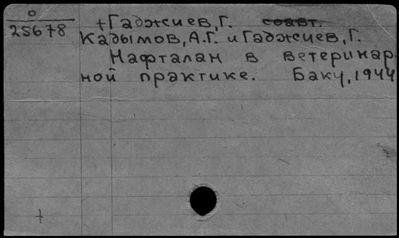 о
25678
+Гаджиев, Г. соавт.
Кадымов, А.Г. и Гаджиев, Г.
Нафталан в ветеринар-
ной практике. Баку, 1944
+